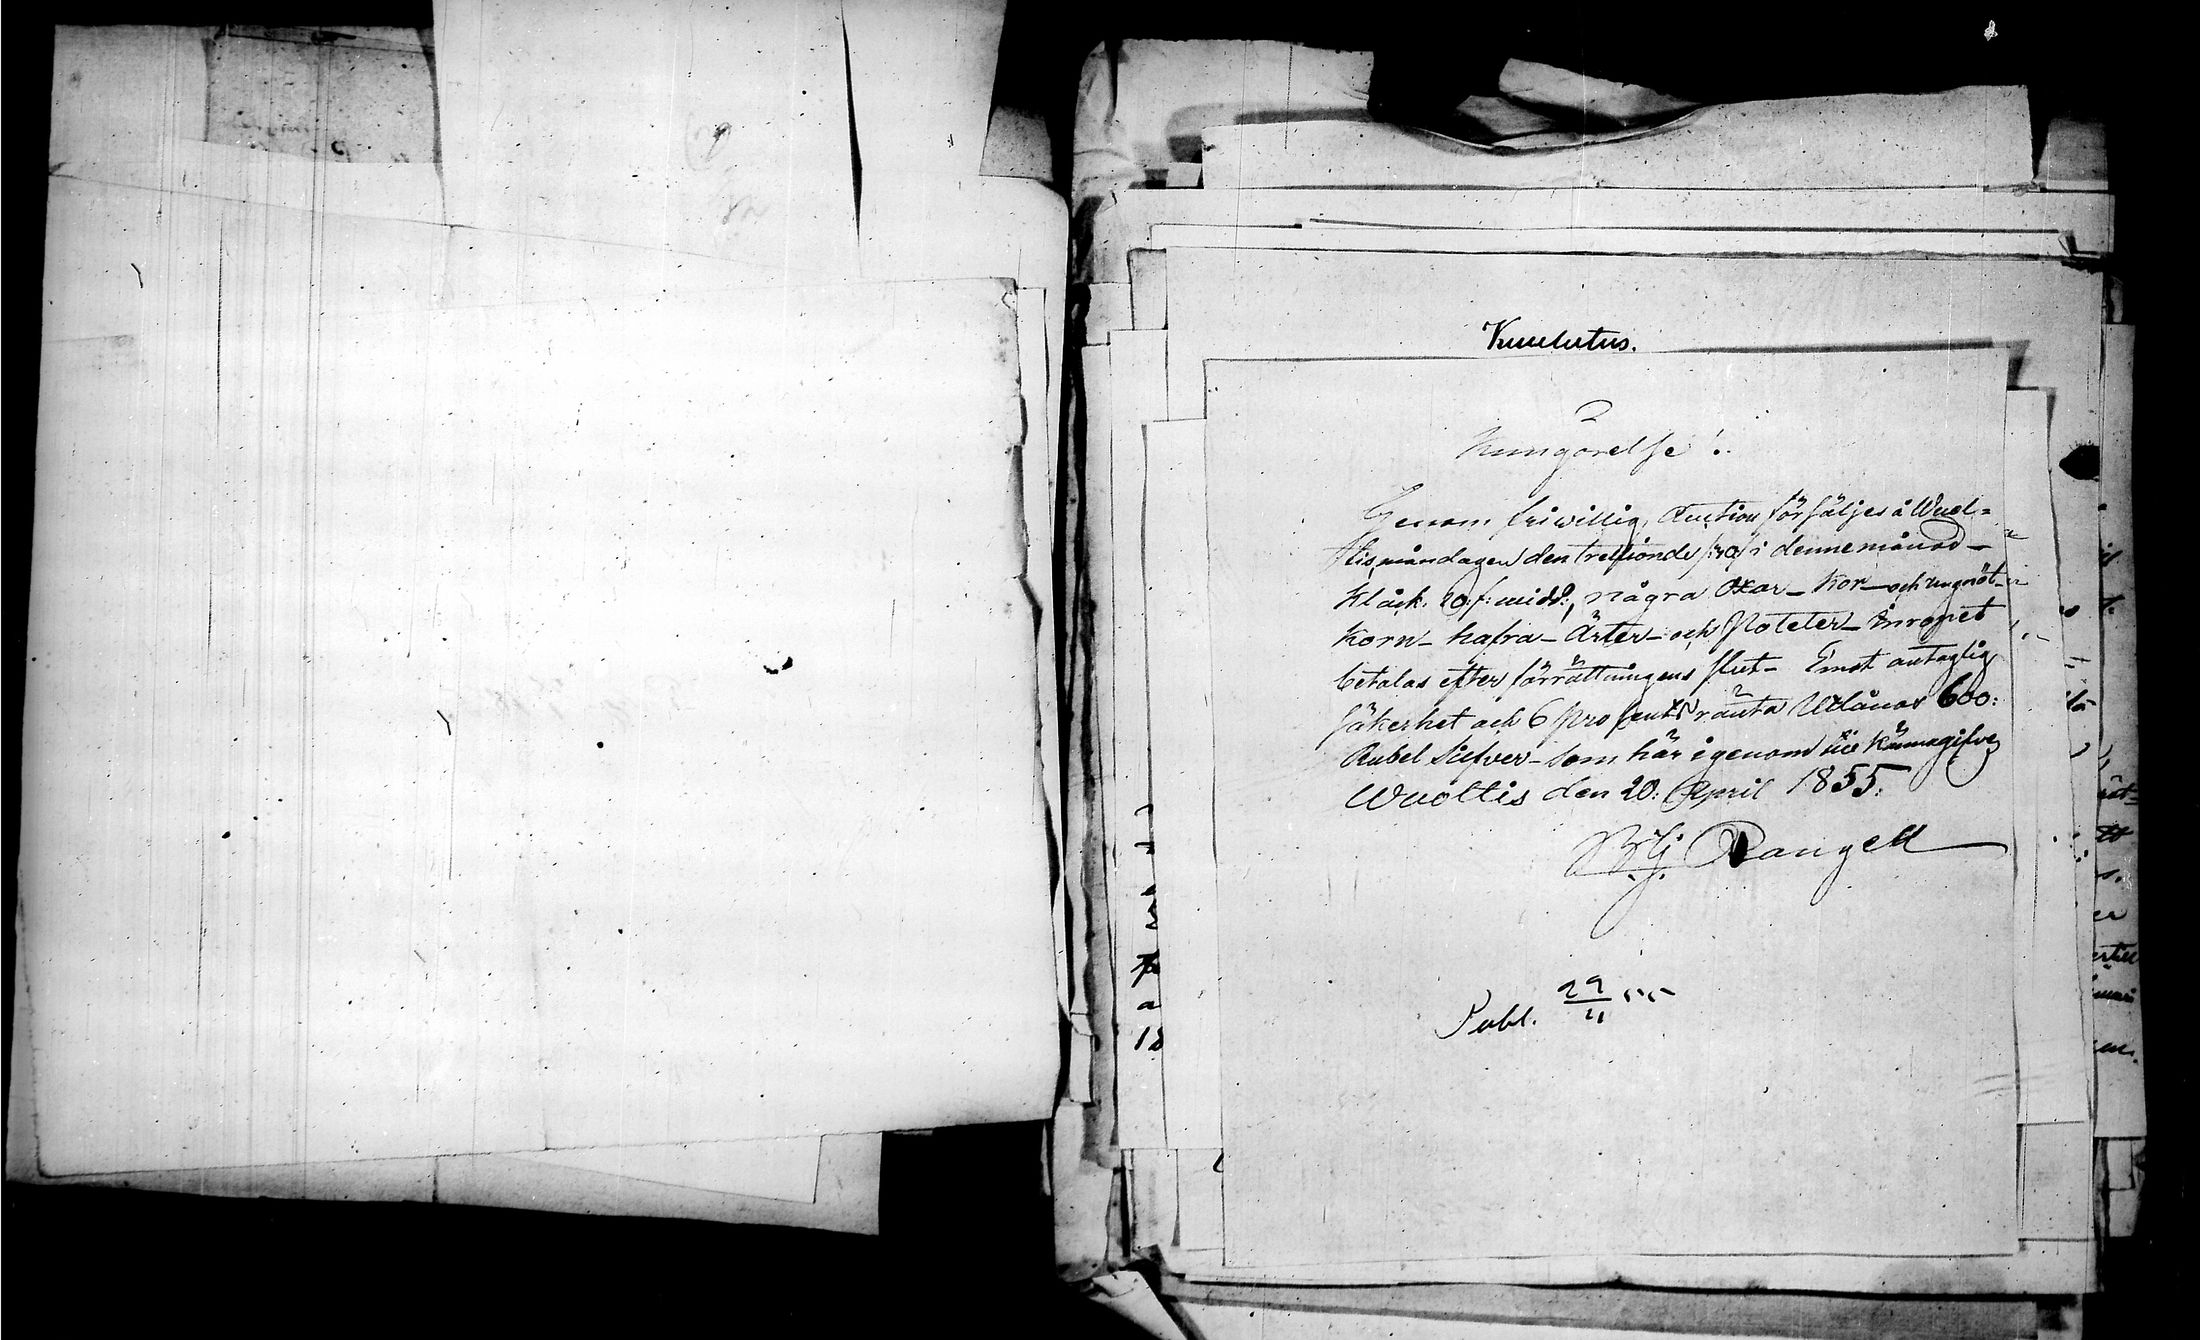 Kuulutus.
Kungörelse!
Genom friwillig Auction försäljes å Wuol-
tis, måndagen den trettionde /:30:/ i denne månad -
Klåck. 10. f: midd:, några Oxar - Kor - och ungnöt -
Korn - hafra - Ärter - och Poteter - Inropet
betalas efter förrättningens slut - Emot antaglig
säkerhet och 6 prosents ränta Utlånas 600:
Rubel Silfver - som här igenom kännagifves
Wuoltis den 20: April 1855.
Rangell
Publ. 29/4 55